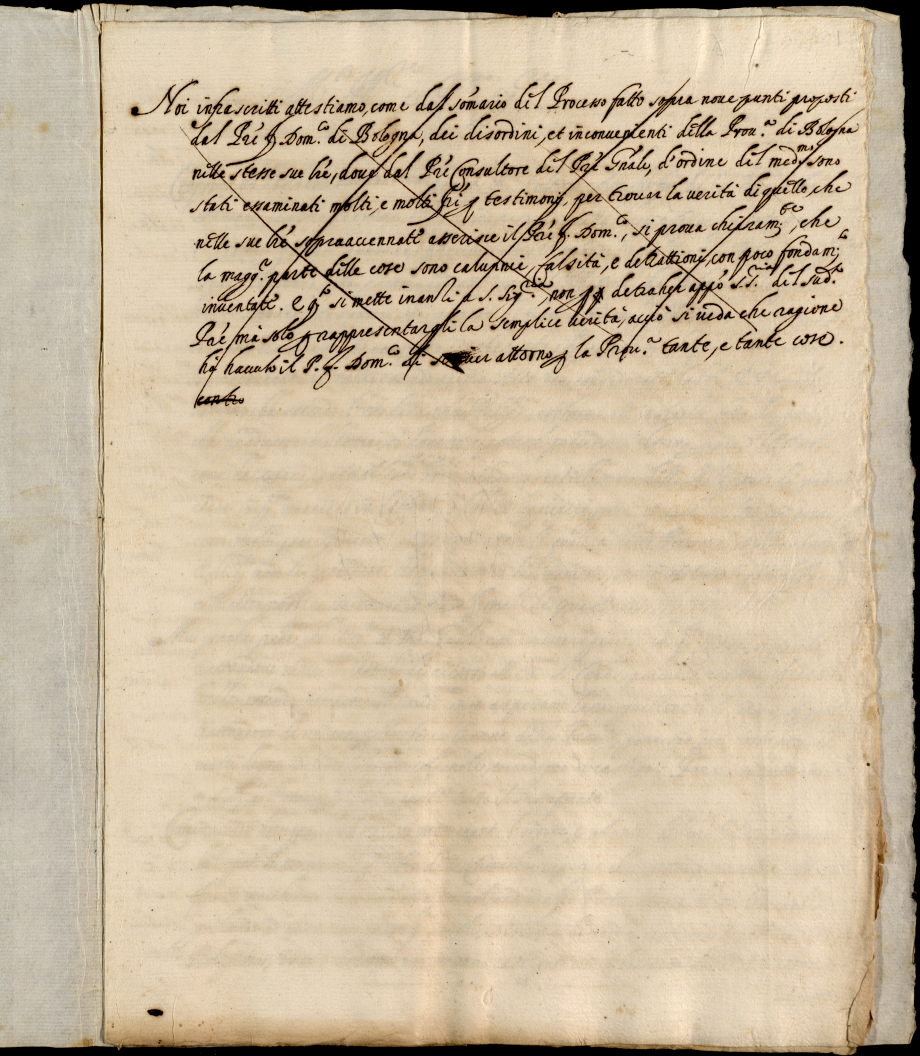 Noi infrascritti attestiamo, come dal som̃ario del Processo fatto sopra noue punti proposti
dal Prẽ f. Dom.co di Bologna, dei disordini, et inconuenienti della Prou.a di Bologna
nelle stesse sue lrẽ, doue dal Prẽ Consultore del Prẽ Gñale, d'ordine del med.mo sono
stati essaminati molti, e molti frĩ p testimonij, per trouar la verità di quello, che
nelle sue lrẽ sopraaccennate asserisce il Prẽ f. Dom.co, si proua chiaram.te, che
la magg.r parte delle cose sono calunnie, falsità, e detrattioni, con poco fondam.to
inuentate. E q.to si mette inanzi a S. Sig.ria, non p detraher appò S. S.ria del sud.o
Prẽ, mà solo p rappresentargli la semplice verità, acciò si ueda che ragione
hà hauuto il P. f. Dom.co di attorno p la Prou.a tante, e tante cose.
contro